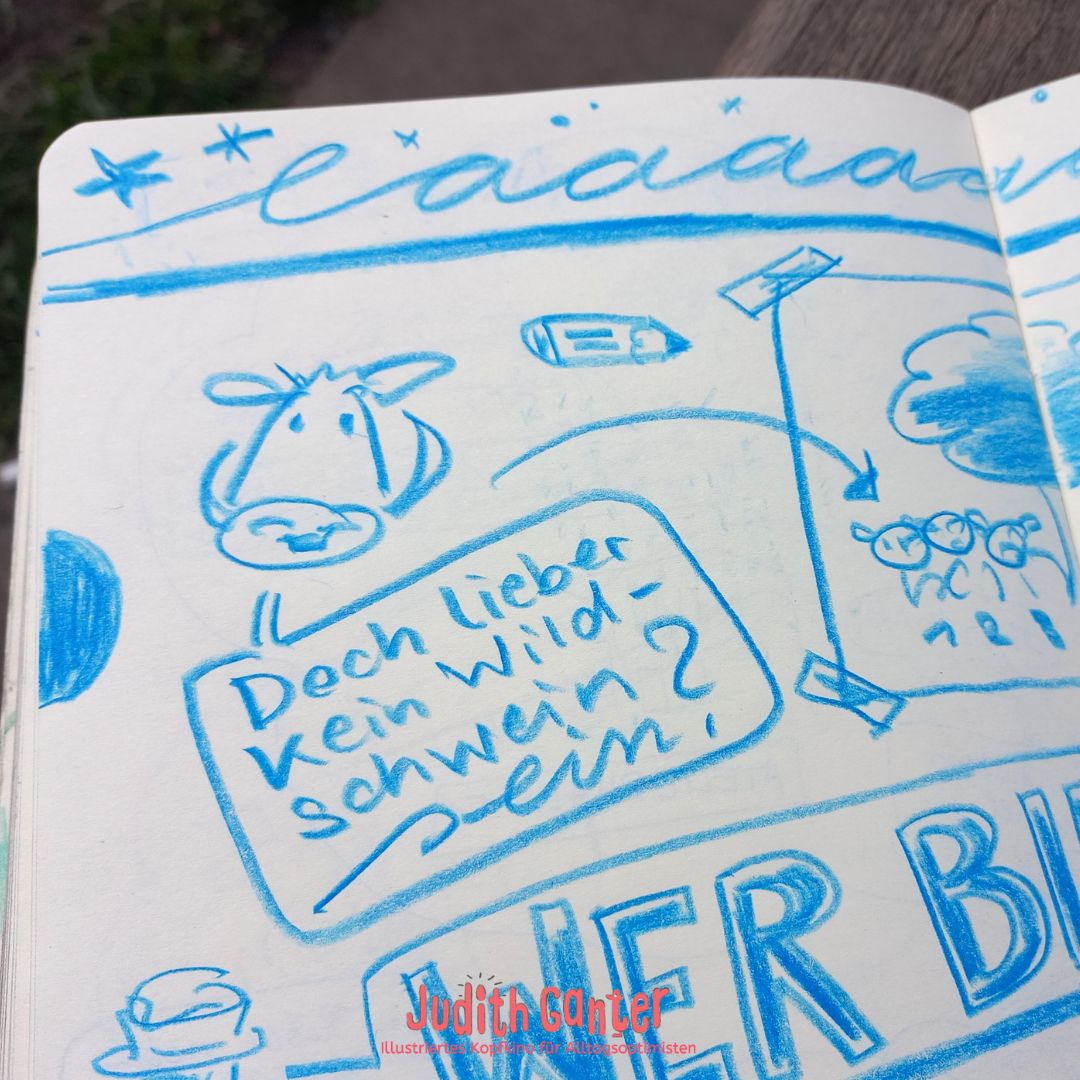 eaaaa
Doch lieber
kein Wild-
schwein?
sein,
WER BI
Judith Ganter
Illustriertes Kopfkino für Alltagsoptimisten